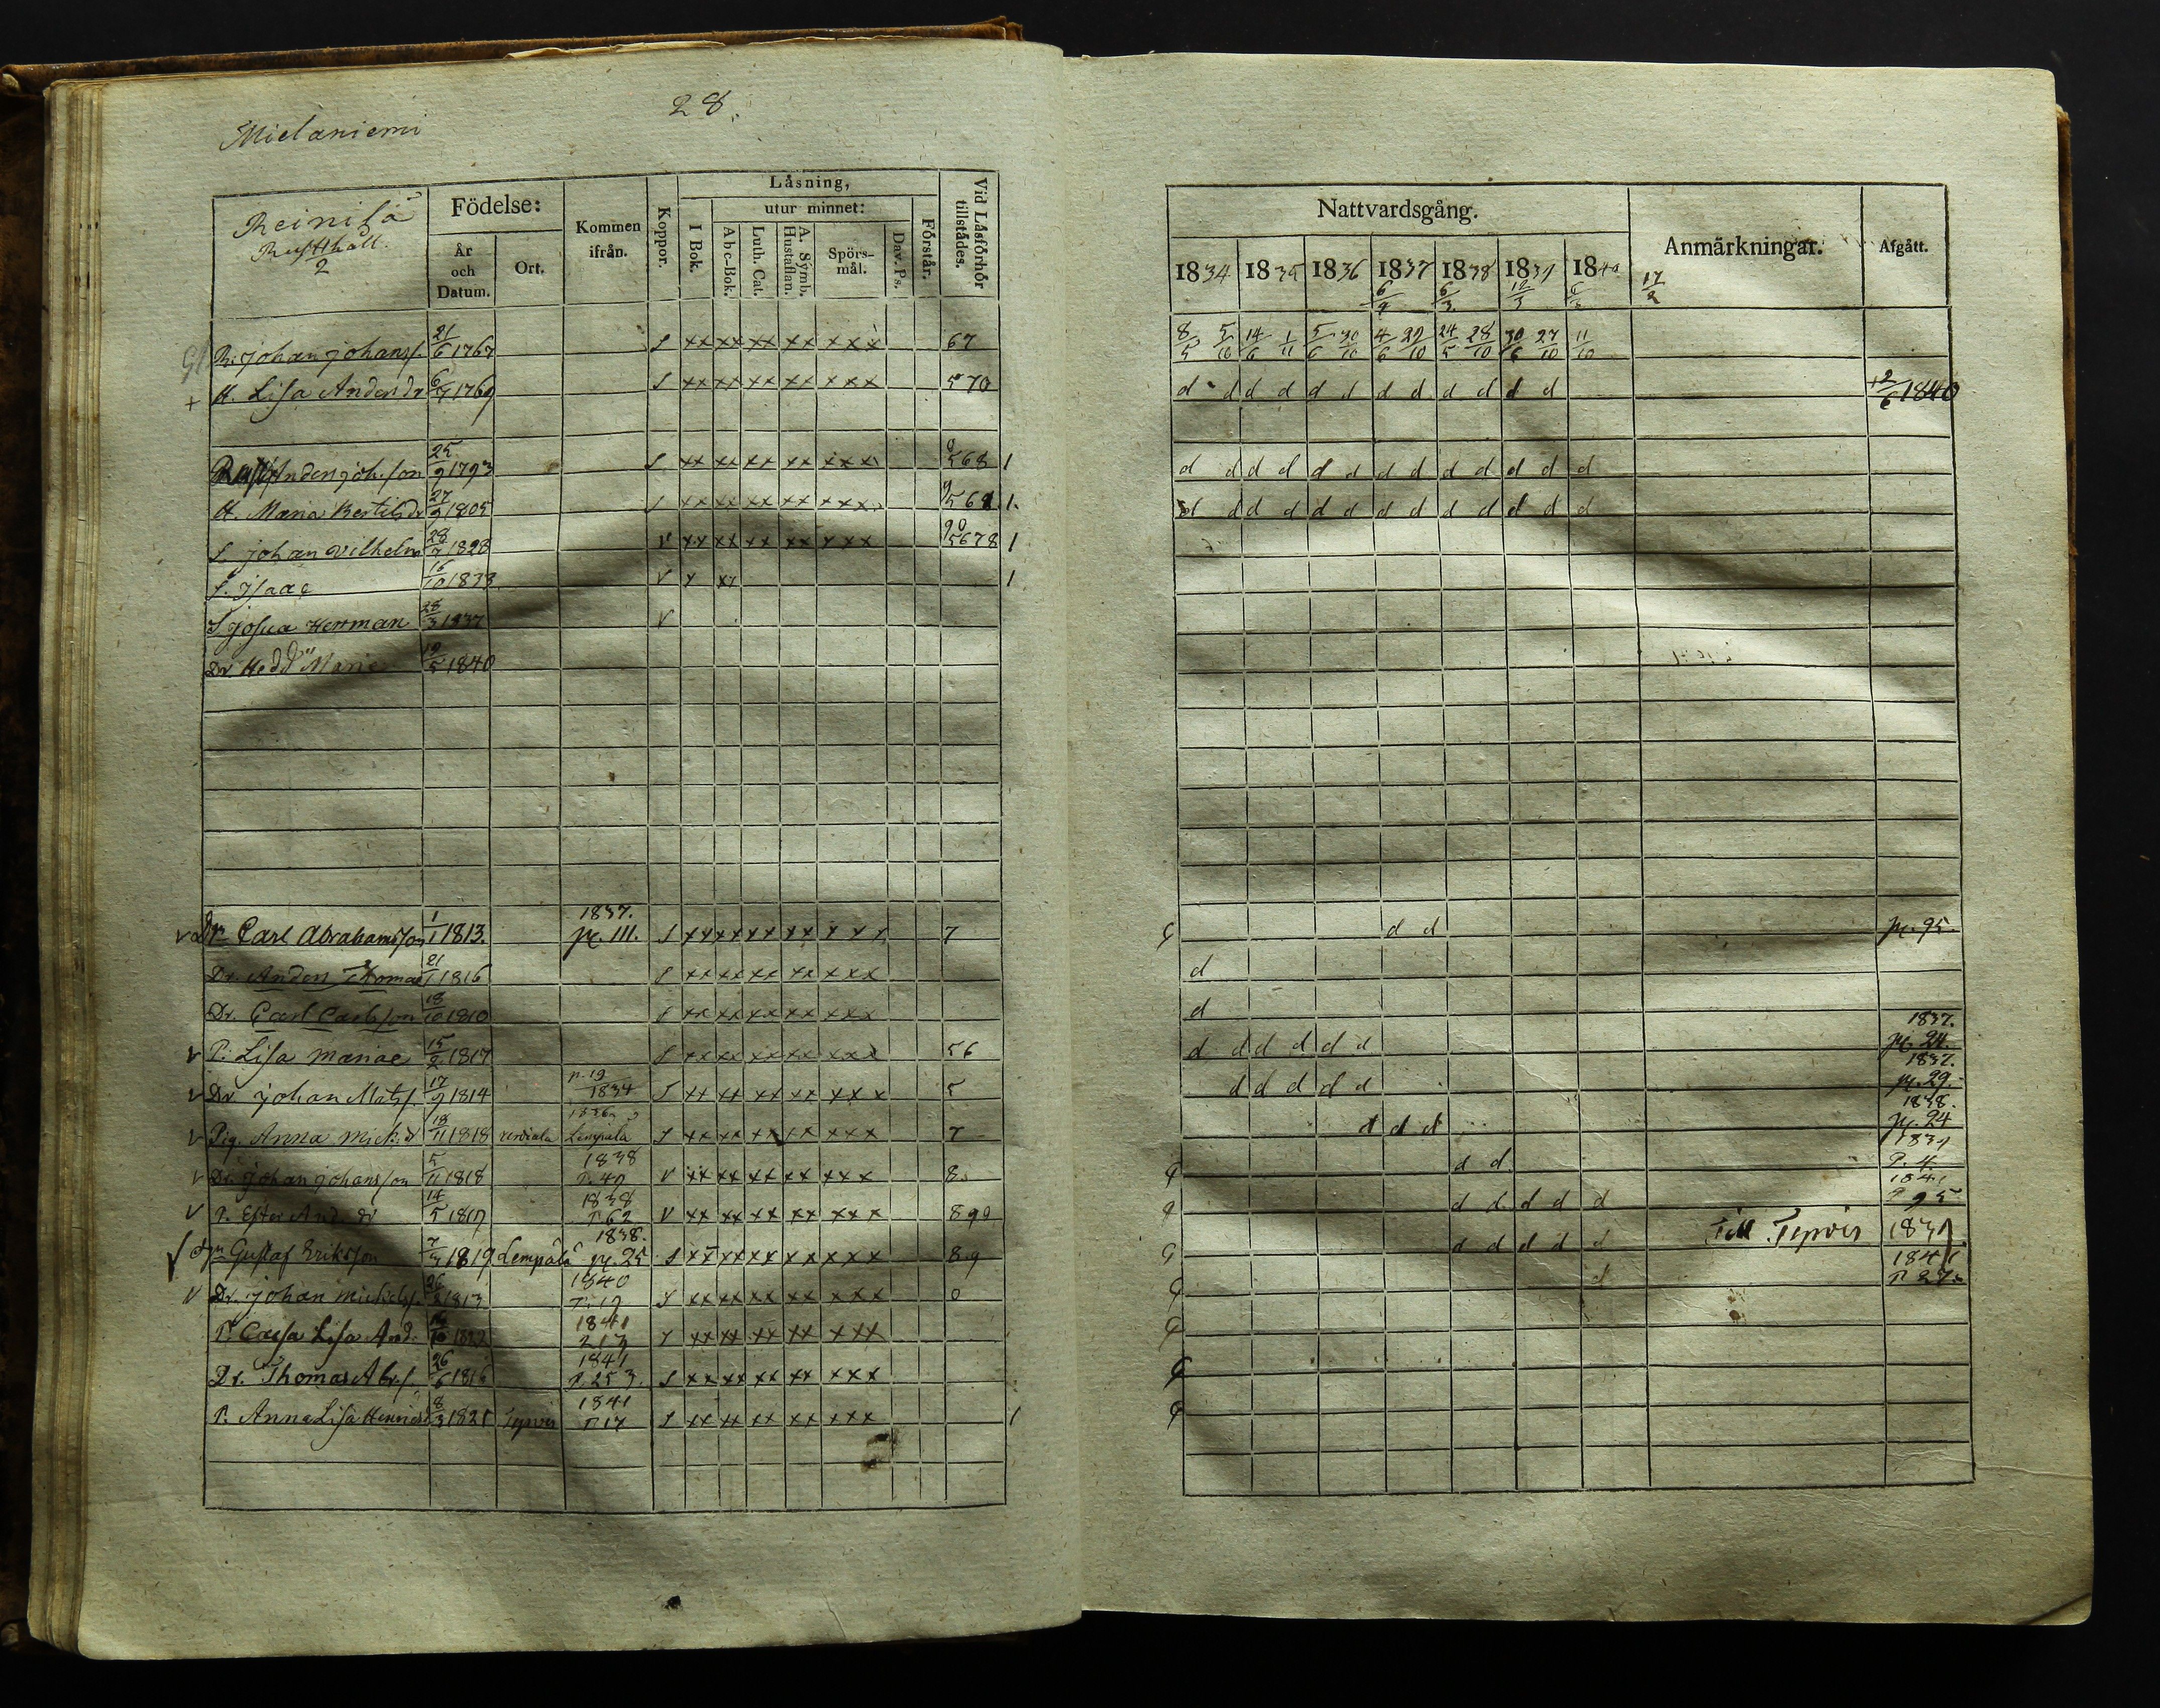 28.
Mielaniemi
Reinilä
Rusthåll.
2
Födelse:
År och Datum.
Ort.
Kommen ifrån.
Koppor.
Låsning,
I Bok.
utur minnet:
Abc-Bok.
Luth. Cat.
A. Symb. Hustaflan.
Spörsmål.
Dav. Ps.
Förstår.
Vid Låsförhör tillstädes.
R. Johan Johanss. 21/6 1767 S xx xx xx xx x x x 67
H. Lisa Andersdr 6/7 1769 S xx xx xx xx x x x 570
Anders Joh.son 25/9 1793 S xx xx xx xx x x x 568 1
H. Maria Bertilsdr 27/9 1805 S xx xx xx xx x x x 568 1.
S Johan Vilhelm 28/7 1828 V xx xx xx xx x x x 5678 1
S. Isaac 16/10 1833 V x xx 1
S Josua Herman 28/3 1837 V
Dr Hedd Maria 19/5 1840
Dr Carl Abrahamsson 1/1 1813. 1837. p. 111. S xx xx xx xx x x x 7
Dr. Anders Thomas 21/1 1816 S xx xx xx xx x x x
Dr. Carl Carlsson 18/10 1810 S xx xx xx xx x x x
P. Lisa Mariae 15/2 1817 S xx xx xx xx x x x 56
Dr Johan Mats. 17/9 1814 p. 19 1834 S xx xx xx xx x x x 5
Pig. Anna Mich. d 18/11 1818 Lempälä S xx xx xx xx x x x 7
Dr. Johan Johansson 5/11 1818 1838 P. 40 V xx xx xx xx x x x 8
P. Ester And. dr 14/5 1817 1838 P 62 V xx xx xx xx x x x 890
Dr Gustaf Eriksson 7/3 1819 Lempälä 1838. p. 25 S xx xx xx xx x x x 89
Dr. Johan Michelss. 1813 1840 P. 19 S xx xx xx xx x x x 0
P. Caisa Lisa And. 1822 1841 xx xx xx xx x x x
Dr. Thomas Abr. s. 26/6 1816 1841 P. 253. S xx xx xx xx x x x
P. Anna Lisa Henricsd 8/3 1821 Tyrvis 1841 P 17 S xx xx xx xx x x x 1
Nattvardsgång.
Anmärkningar.
Afgått.
1834 1835 1836 1837 1838 1839 1840
6/9 6/3 12/3 17/2
8/5 5/10 14/6 1/11 5/6 30/10 4/6 29/10 24/5 28/10 30/6 27/10 11/10
d d d d d d d d d d d d +2/6 1840
d d d d d d d d d d d d d
d d d d d d d d d d d d d
d d p. 95.
d
d
d d d d d d 1837. p. 24.
d d d d d 1837. p. 29.
d d d 1838. p. 24
d d 1839 P. 4
d d d d d 1841 P 95
d d d d d Till Tyrvis 1839
d 1841 P 27.